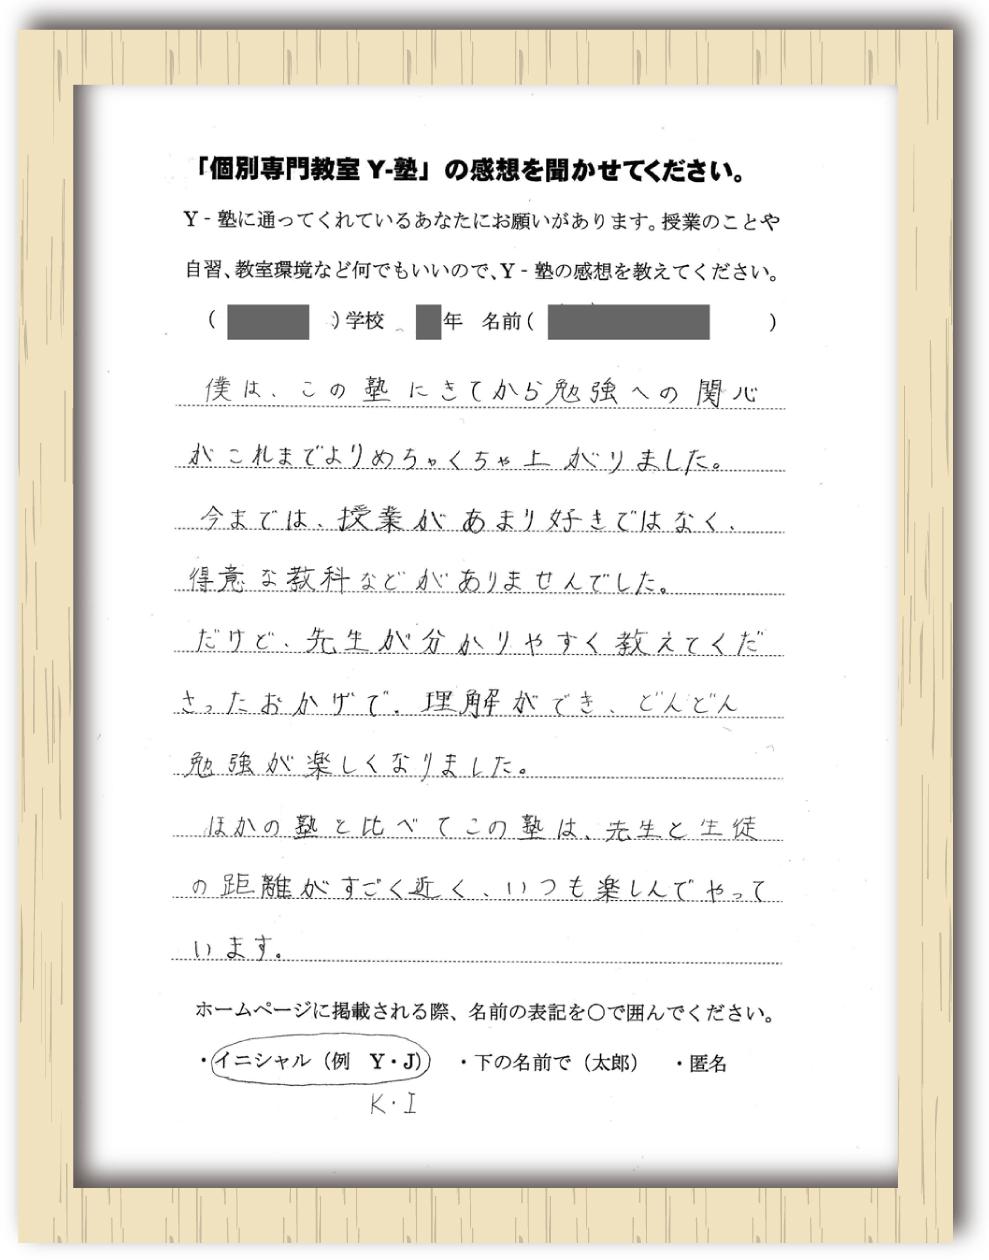 「個別専門教室 Y-塾」の感想を聞かせてください。
Y‐塾に通ってくれているあなたにお願いがあります。授業のことや
自習、教室環境など何でもいいので、Y‐塾の感想を教えてください。
（　　）学校　年　名前（　　）
僕は、この塾にきてから勉強への関心
がこれまでよりめちゃくちゃ上がりました。
今までは、授業があまり好きではなく、
得意な教科などがありませんでした。
だけど、先生が分かりやすく教えてくだ
さったおかげで、理解ができ、どんどん
勉強が楽しくなりました。
ほかの塾と比べてこの塾は、先生と生徒
の距離がすごく近く、いつも楽しんでやって
います。
ホームページに掲載される際、名前の表記を〇で囲んでください。
・イニシャル（例　Y・J）　・下の名前で（太郎）　・匿名
K・I